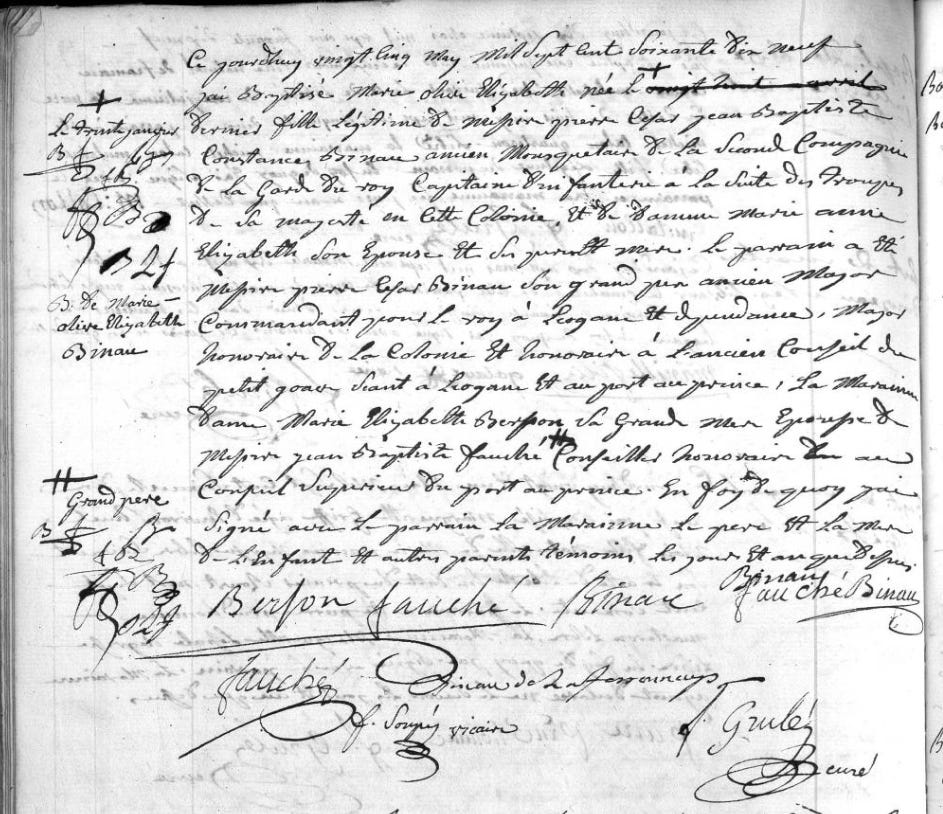 Ce jourdhuy vingt Cinq May Mil Sept Cent Soixante Dix neuf
jai Baptisé Marie olive Elizabeth née le + vingt huit avril
dernier fille Légitime de Messire pierre Cesar jean Baptiste
Constance Binau ancien Mousquetaire de La Seconde Compagnie
de la Garde du roy Capitaine d'infanterie à la Suite des Troupes
de Sa majesté en Cette Colonie, Et de Damme Marie anne
Elizabeth Son Epouse Et Ses pere Et Mere. le parrain a Eté
Messire pierre Cesar Binau Son grand per ancien Major
Commandant pour le roy à Leogane Et dependance, Major
honoraire de La Colonie Et honoraire à L'ancien Conseil du
petit goave Seant à Leogane Et au port au prince, La Maraine
Dame Marie Elizabeth Berson Sa Grand Mere Epouse de
Messire jean Baptiste fauché # Conseiller honoraire au
Conseil Superieur du port au prince. En foy de quoy jai
Signé avec Le parrain La Marainne Le pere Et La Mere
de L'Enfant Et autres parents temoins Les jours Et an que dessus
+
Le trente janvier
B 24
B. de Marie
olive Elizabeth
Binau
#
Grand pere
Berson fauché Binau Binau
fauché Binau
fauché Binau de
f. vicaire
curé